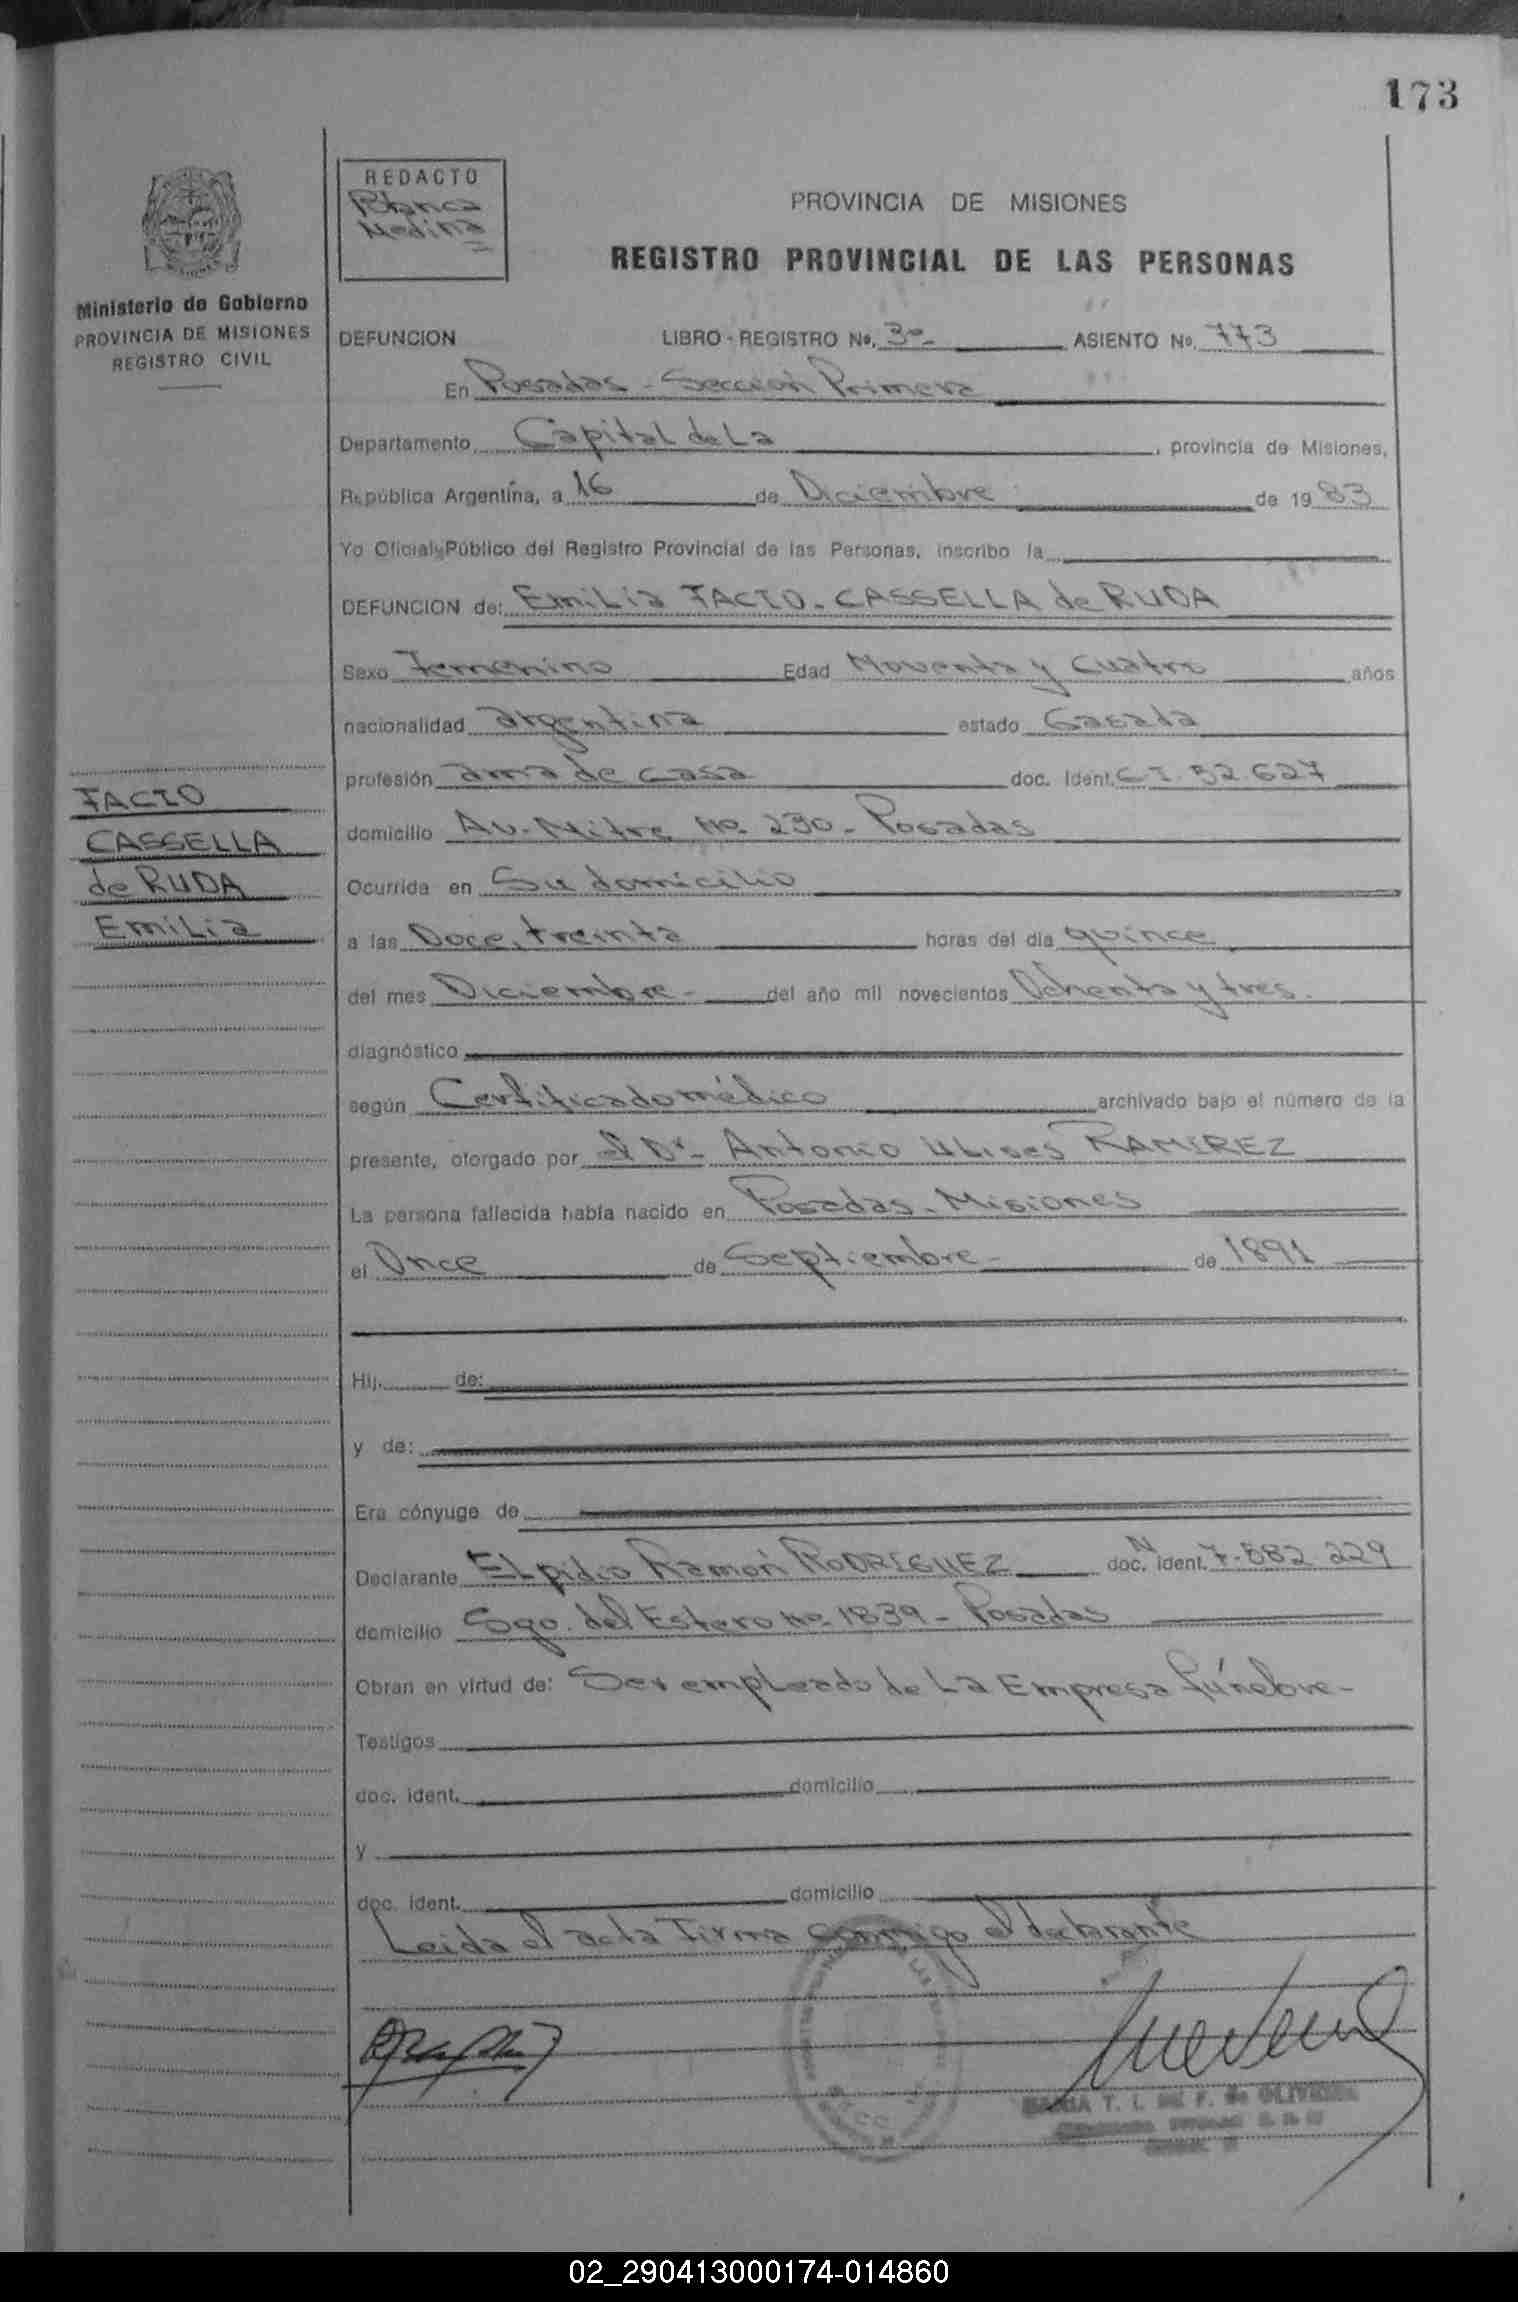 173
REDACTO
Blanca
Medina
PROVINCIA DE MISIONES
REGISTRO PROVINCIAL DE LAS PERSONAS
Ministerio de Gobierno
PROVINCIA DE MISIONES
REGISTRO CIVIL
DEFUNCION LIBRO - REGISTRO No. 3º- ASIENTO No. 773
En Posadas - Sección Primera
Departamento Capital de La, provincia de Misiones,
República Argentina, a 16 de Diciembre de 1983
Yo Oficial Público del Registro Provincial de las Personas, inscribo la
DEFUNCION de: Emilia FACTO. CASSELLA de RUDA
Sexo Femenino Edad Noventa y Cuatro años
nacionalidad argentina estado Casada
profesión ama de casa doc. Ident. C I. 52.627
domicilio Av. Mitre No. 230 - Posadas
Ocurrida en Su domicilio
a las Doce, treinta horas del día quince
del mes Diciembre - del año mil novecientos Ochenta y tres.
diagnóstico
según Certificado médico archivado bajo el número de la
presente, otorgado por el Dr. Antonio Ulises RAMIREZ
La persona fallecida había nacido en Posadas. Misiones
el Once de Septiembre - de 1891
Hij de:
y de:
Era cónyuge de
Declarante Elpidio Ramón RODRIGUEZ doc. N ident. 7.582 229
domicilio Sgo. del Estero No. 1839 - Posadas
Obran en virtud de: Ser empleado de La Empresa fúnebre -
Testigos
doc. ident. domicilio
y
doc. ident. domicilio
Leida el acta Firma conmigo el declarante
FACTO
CASSELLA
de RUDA
Emilia
T. I. F. de OLIVEIRA
02_290413000174-014860